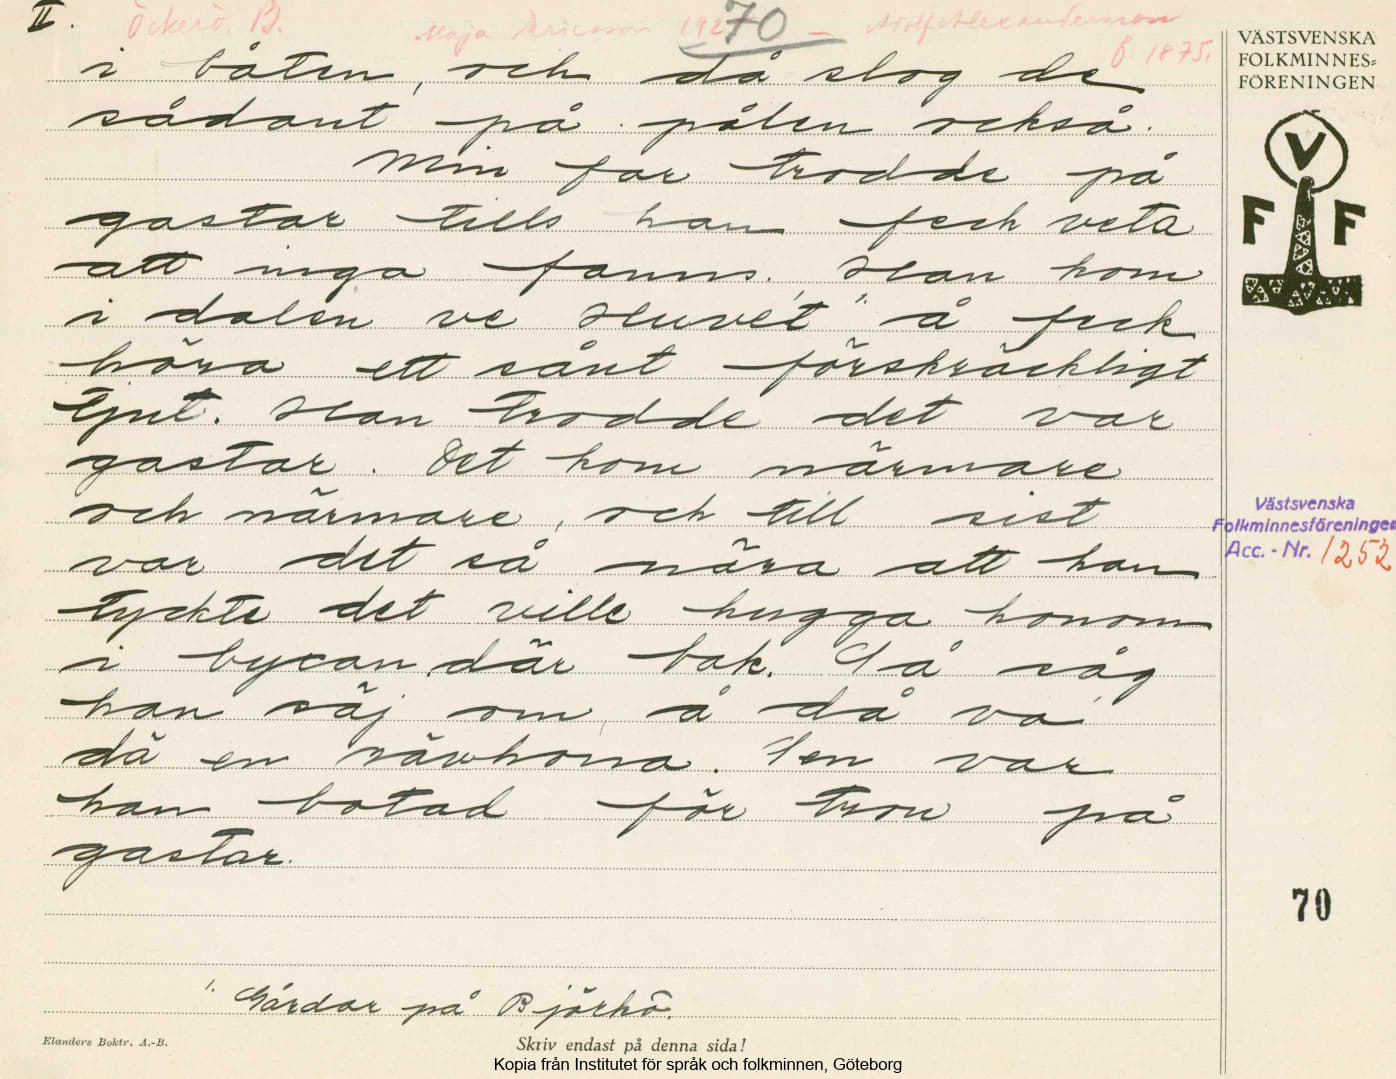 II.
Öckerö. B.
Maja Ericsson 192
70
— Adolf Alexandersson
f. 1875.
i båten, och då slog de
sådant på pålen också.
Min far trodde på
gastar tills han feck veta
att inga fanns. Han kom
i dalen ve Huvet ¹· å feck
höra ett sånt förskräckligt
tjut. Han trodde det var
gastar. Det kom närmare
och närmare, och till sist
var det så nära att han
tyckte det ville hugga honom
i byxan där bak. Så såg
han säj om, å då va
dä en rävhona. Sen var
han botad för tron på
gastar.
¹· Gårdar på Björkö.
Elanders Boktr. A.-B.
Skriv endast på denna sida!
Kopia från Institutet för språk och folkminnen, Göteborg
VÄSTSVENSKA
FOLKMINNES=
FÖRENINGEN
V
F F
Västsvenska
Folkminnesföreningen
Acc. - Nr. 1252
70